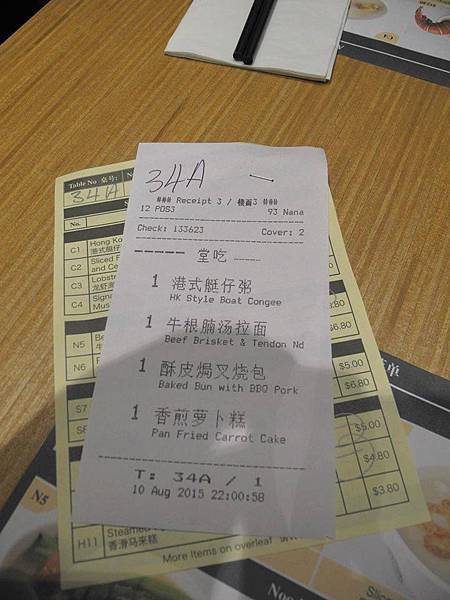 34A
### Receipt 3 / 楼面3 ###
12 POS3 93 Nana
Check: 133623 Cover: 2
堂吃
1 港式艇仔粥
HK Style Boat Congee
1 牛根腩汤拉面
Beef Brisket & Tendon Nd
1 酥皮焗叉烧包
Baked Bun with BBQ Pork
1 香煎萝卜糕
Pan Fried Carrot Cake
T: 34A / 1
10 Aug 2015 22:00:58
Table No 桌号:
34A
No.
C1 Hong Ko
港式艇仔
C2 Sliced F
and Ce
C3 Lobste
龙虾汤
C4 Signa
Mus
N5 Be
牛
N6
S7
S8
H11 Steamed
香滑马来糕
More Items on overleaf
6.80
$5.00
$6.80
$5.00
$4.80
$3.80
N5
单
Nood
Slice